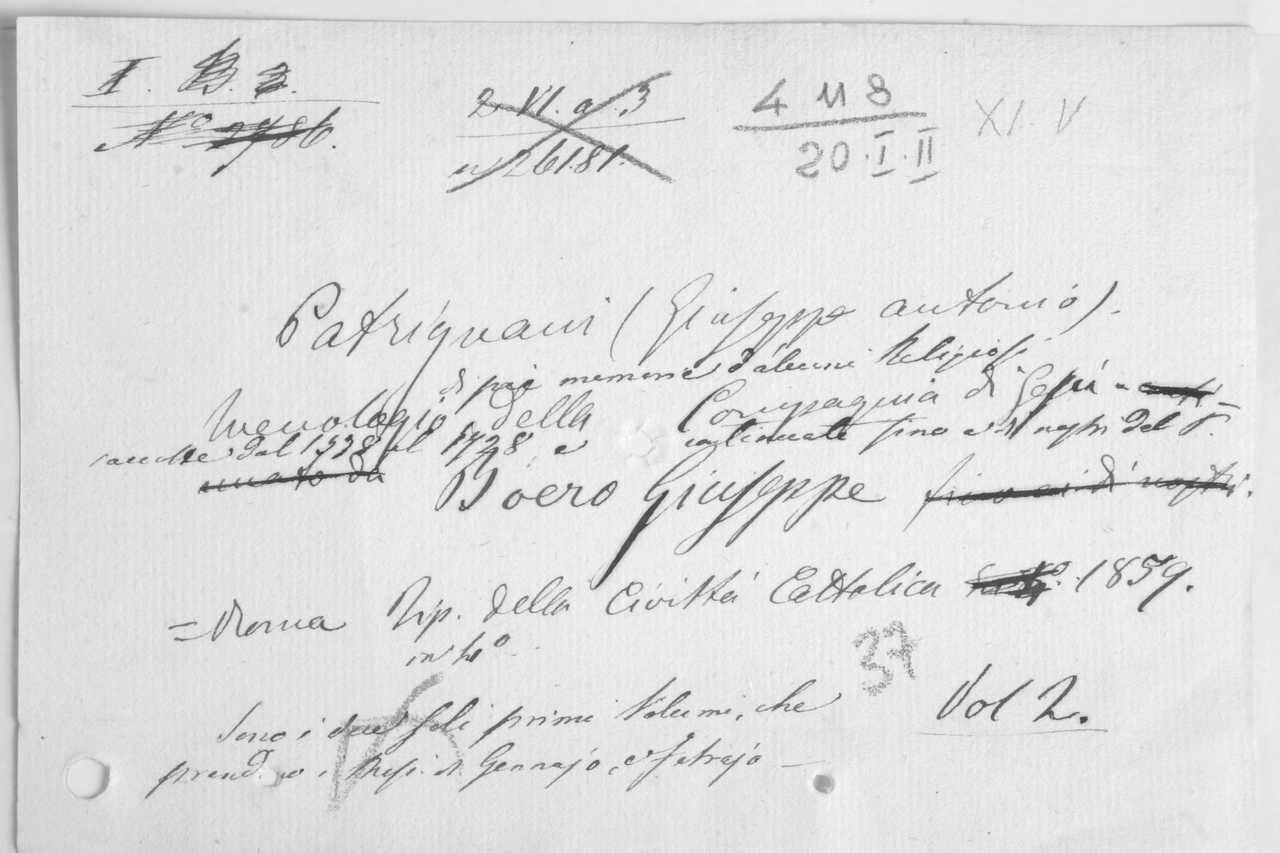 I. B. 3.
N.º 2786.
2 VI. a. 3
n. 26181.
4 11 8
20.I.II
XI. V
Patrignani (Giuseppe antonio).
di pie memorie d'alcuni Religiosi
Menologio della Compagnia di Gesù
raccolte dal 1538 al 1728, e continuate fino a dì nostri del P.
Boero Giuseppe fino ai dì nostri.
= Roma Tip. della Civiltá Cattolica 1859.
in 4º
37
Vol 2.
Sono i due soli primi Volumi, che
prendono i Mesi di Gennajo, e Febrajo —